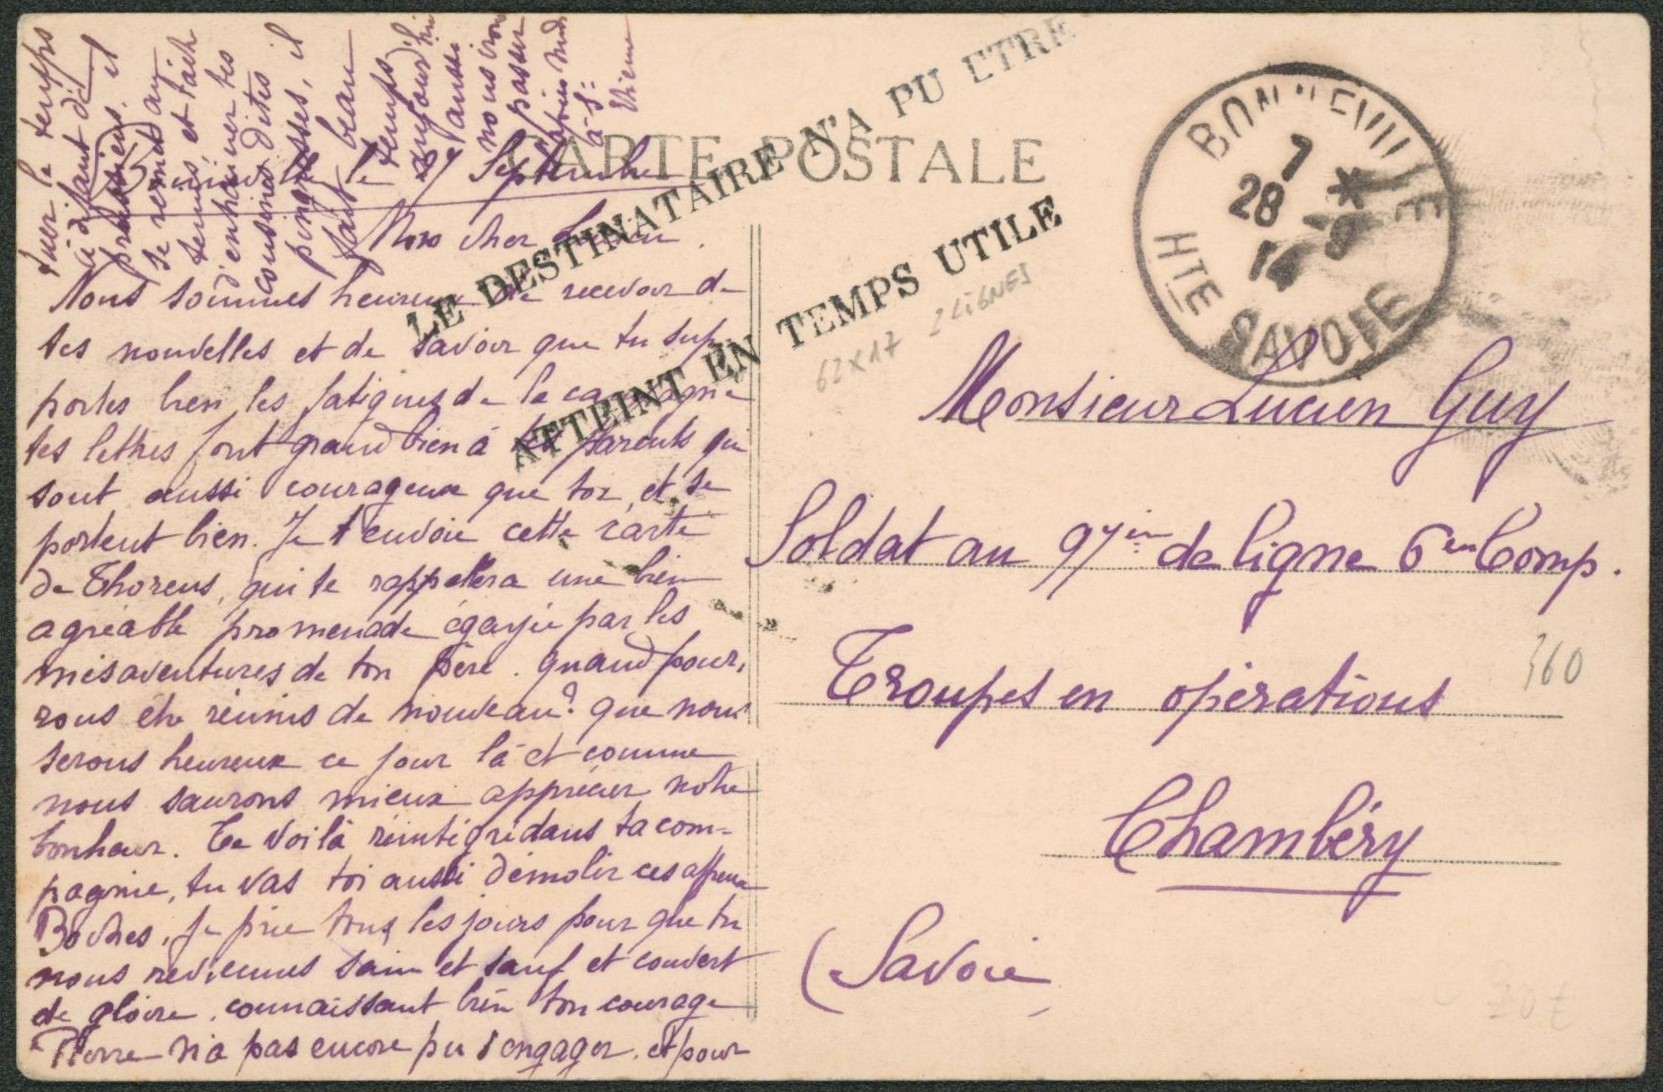 CARTE POSTALE
LE DESTINATAIRE N'A PU ETRE
ATTEINT EN TEMPS UTILE
BONNEVILLE
7
28 - 9
14
HTE SAVOIE
62x17 2 LIGNES
Bonneville le 27 Septembre
Mon cher Lucien.
Nous sommes heureux de recevoir de
tes nouvelles et de savoir que tu sup-
portes bien les fatigues de la campagne
tes lettres font grand bien à tes parents qui
sont aussi courageux que toi et se
portent bien. Je t'envoie cette carte
de Thorens, qui te rappellera une bien
agréable promenade égayée par les
mésaventures de ton père. quand pour,
rons être réunis de nouveau? que nous
serons heureux ce jour là et comme
nous saurons mieux apprécier notre
bonheur. Te voilà réintégré dans ta com-
pagnie, tu vas toi aussi démolir ces affreux
Boches, je prie tous les jours pour que tu
nous reviennes sain et sauf et couvert
de gloire. connaissant bien ton courage
Pierre n'a pas encore pu s'engager. et pour
tuer le temps
à défaut de
prussiens, il
se remet au
tennis et fait
d'enrhumer tes
cousines dites
pingresses, il
fait beau
temps
aujourd'hui
aussi
nous irons
passer
l'après midi
à St
Monsieur Lucien Guy
Soldat au 97èm de ligne 6em Comp.
Troupes en opérations
Chambéry
(Savoie
360
20€